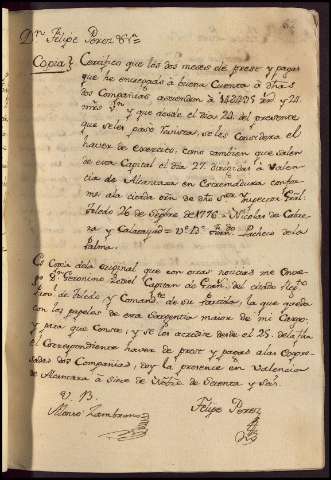 Dn. Felipe Perez &ra
Copia} Certifico que los dos meses de prest y pagas
que he entregado à buena Cuenta à dhas
dos Compañias ascienden à rs. vn y 24
mrs. vn y que desde el dia 24 del presente
que se les pasó Revista, se les Considera el
haver de exercito, como tambien que salen
de esta Capital el dia 27. dirigidas à Valen=
cia de Alcantara en Extremadura confor=
me ala citada orn de dho Sor Inspector Gral
Toledo 26 de Sepbre de 1776 = Nicolas de Cabre=
ra y Calatayud = Vo. Bo. Pacheco de la
Palma.
Es Copia dela original que con otras noticias me
Dn Geronimo Capitan de Gran. del citado Regto
Prov.l de Toledo y Comandte de su Partida, la que queda
con los papeles de esta Sargentia maior de mi Cargo,
y para que Conste, y se les acredite desde el 25. de
el Correspondiente haver de prest y pagas alas expre=
sadas dos Compañias, doy la presente en Valencia
de Alcantara à Sinco de Nobre de Setenta y seis.
V. B.
Alonso Zambrano
Felipe Perez